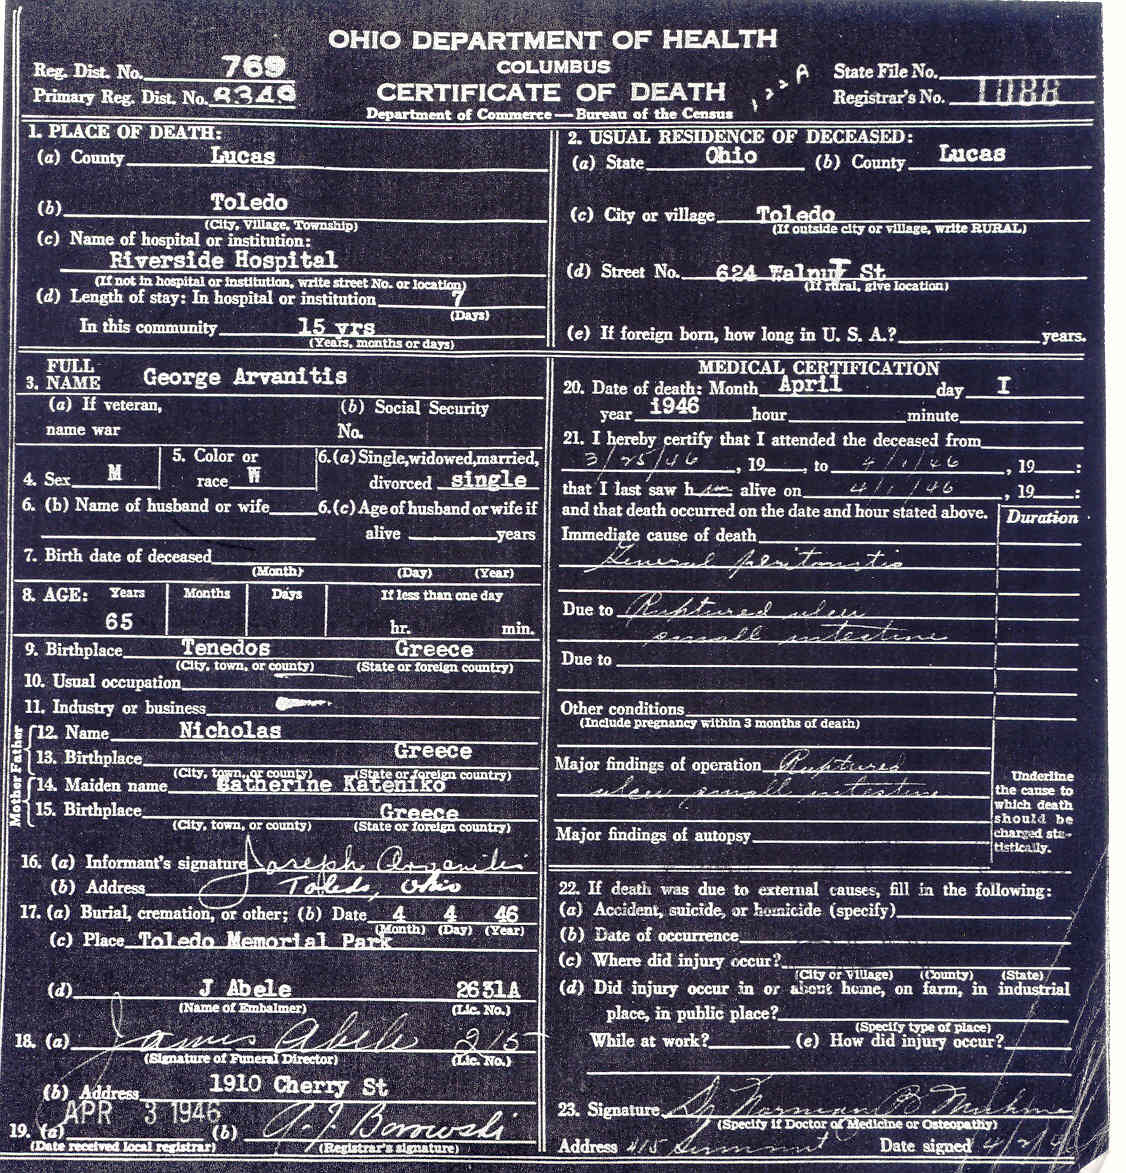 OHIO DEPARTMENT OF HEALTH
COLUMBUS
CERTIFICATE OF DEATH
Department of Commerce — Bureau of the Census
Reg. Dist. No. 769
Primary Reg. Dist. No. 8349
122A
State File No.
Registrar's No. 1088
1. PLACE OF DEATH:
(a) County Lucas
(b) Toledo
(City, Village, Township)
(c) Name of hospital or institution:
Riverside Hospital
(If not in hospital or institution, write street No. or location)
(d) Length of stay: In hospital or institution 7
(Days)
In this community 15 yrs
(Years, months or days)
2. USUAL RESIDENCE OF DECEASED:
(a) State Ohio (b) County Lucas
(c) City or village Toledo
(If outside city or village, write RURAL)
(d) Street No. 624 Walnut St
(If rural, give location)
(e) If foreign born, how long in U. S. A.? years.
3. FULL NAME George Arvanitis
(a) If veteran, name war
(b) Social Security No.
4. Sex M
5. Color or race W
6.(a) Single, widowed, married, divorced single
6. (b) Name of husband or wife
6.(c) Age of husband or wife if alive years
7. Birth date of deceased
(Month) (Day) (Year)
8. AGE: Years Months Days If less than one day
65 hr. min.
9. Birthplace Tenedos Greece
(City, town, or county) (State or foreign country)
10. Usual occupation
11. Industry or business
Father
12. Name Nicholas
13. Birthplace Greece
(City, town, or county) (State or foreign country)
Mother
14. Maiden name Catherine Kateniko
15. Birthplace Greece
(City, town, or county) (State or foreign country)
16. (a) Informant's signature Joseph Arvanitis
(b) Address Toledo, Ohio
17. (a) Burial, cremation, or other; (b) Date 4 4 46
(Month) (Day) (Year)
(c) Place Toledo Memorial Park
(d) J Abele 2631A
(Name of Embalmer) (Lic. No.)
18. (a) James Abele 215
(Signature of Funeral Director) (Lic. No.)
(b) Address 1910 Cherry St
19. (a) APR 3 1946 (b) A. J. Borowski
(Date received local registrar) (Registrar's signature)
MEDICAL CERTIFICATION
20. Date of death: Month April day I
year 1946 hour minute
21. I hereby certify that I attended the deceased from
3/25/46, 19 , to 4/1/46, 19 :
that I last saw him alive on 4/1/46, 19 :
and that death occurred on the date and hour stated above.
Duration
Immediate cause of death
General peritonitis
Due to Ruptured ulcer
small intestine
Due to
Other conditions
(Include pregnancy within 3 months of death)
Major findings of operation Ruptured
ulcer small intestine
Major findings of autopsy
Underline the cause to which death should be charged statistically.
22. If death was due to external causes, fill in the following:
(a) Accident, suicide, or homicide (specify)
(b) Date of occurrence
(c) Where did injury occur?
(City or Village) (County) (State)
(d) Did injury occur in or about home, on farm, in industrial
place, in public place?
(Specify type of place)
While at work? (e) How did injury occur?
23. Signature Dr Norman B Muhme
(Specify if Doctor of Medicine or Osteopathy)
Address 415 Summit Date signed 4/2/46